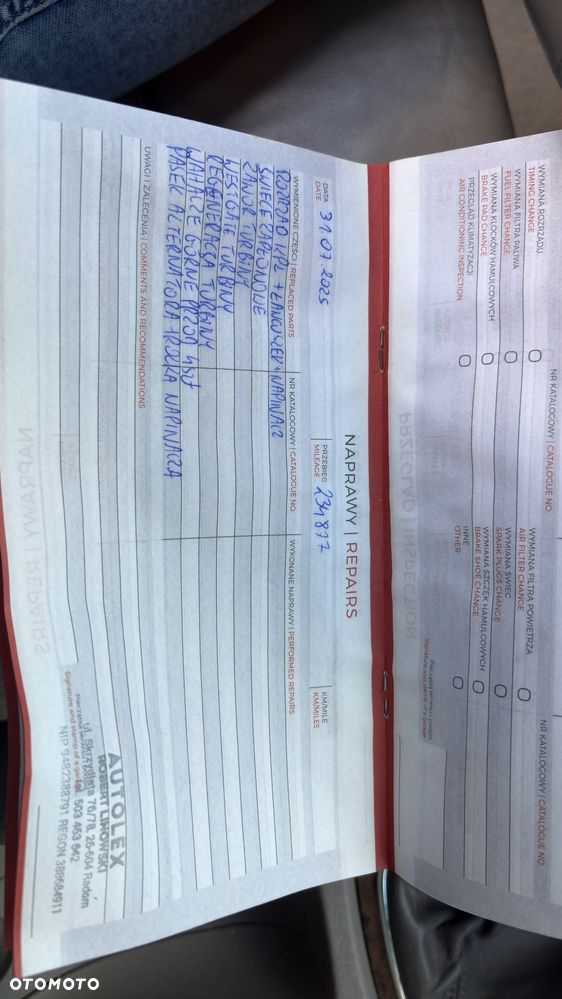 WYMIANA ROZRZĄDU
TIMING CHANGE
WYMIANA FILTRA PALIWA
FUEL FILTER CHANGE
WYMIANA KLOCKÓW HAMULCOWYCH
BRAKE PAD CHANGE
PRZEGLĄD KLIMATYZACJI
AIR CONDITIONING INSPECTION
NR KATALOGOWY | CATALOGUE NO.
WYMIANA FILTRA POWIETRZA
AIR FILTER CHANGE
WYMIANA ŚWIEC
SPARK PLUGS CHANGE
WYMIANA SZCZĘK HAMULCOWYCH
BRAKE SHOE CHANGE
INNE
OTHER
NR KATALOGOWY | CATALOGUE NO.
Pieczątka serwisu i podpis
Signature and stamp of a garage
NAPRAWY | REPAIRS
DATA
DATE
31.07.2025
PRZEBIEG
MILEAGE
234877
KM/MILE
KM/MILES
WYMIENIONE CZĘŚCI | REPLACED PARTS
NR KATALOGOWY | CATALOGUE NO.
WYKONANE NAPRAWY | PERFORMED REPAIRS
ROZRZĄD KPL + ŁAŃCUSZEK + NAPINACZ
ŚWIECE ZAPŁONOWE
ZAWÓR TURBINY
WESTGATE TURBINY
REGENERACJA TURBINY
WAHACZE GÓRNE PRZÓD 4szt
PASEK ALTERNATORA + ROLKA NAPINACZA
UWAGI I ZALECENIA | COMMENTS AND RECOMMENDATIONS
Pieczątka serwisu i podpis
Signature and stamp of a garage
AUTOLEX
ROBERT LINOWSKI
ul. Skrzydlata 76/78, 26-604 Radom
tel. 503 463 642
NIP 9482388791 REGON 388684911
OTOMOTO